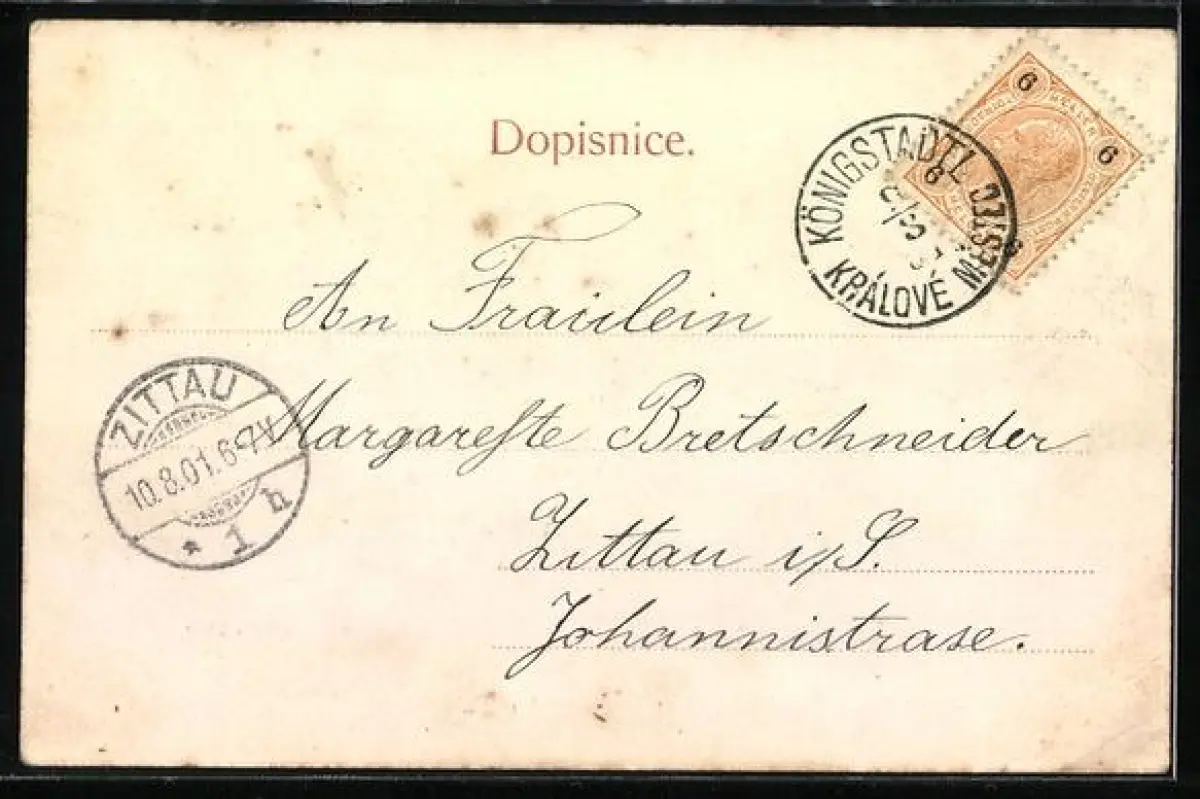 Dopisnice.
KÖNIGSTADTL
KRÁLOVÉ MĚSTEC
6
6
6
An Fraulein
Margarethe Bretschneider
Zittau i/S.
Johannistrase.
ZITTAU
10.8.01. 6-7V.
* 1 h